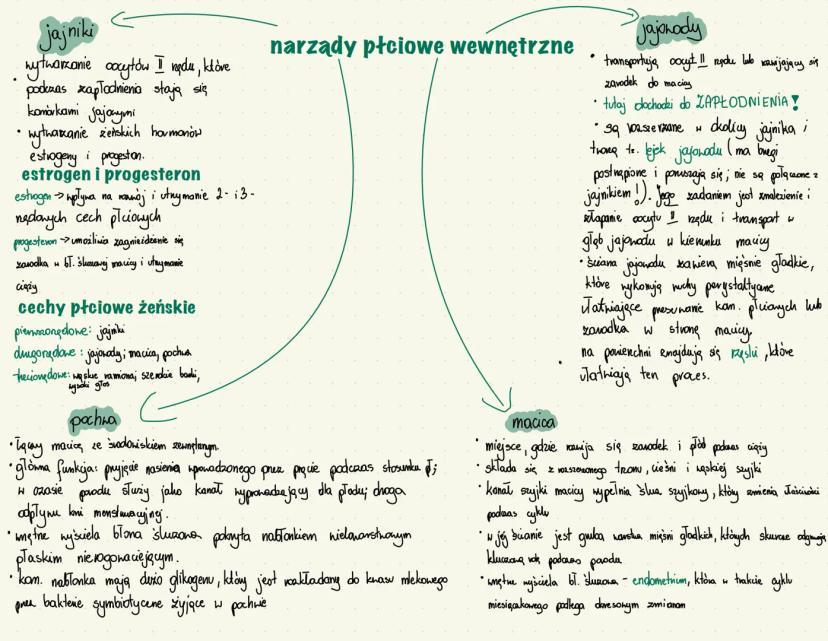 narządy płciowe wewnętrzne
jajniki
wytwarzanie oocytów II rzędu, które
podczas zapłodnienia stają się
komórkami jajowymi
• wytwarzanie żeńskich hormonów
estrogeny i progeston.
estrogen i progesteron
estrogen -> wpływa na rozwój i utrzymanie 2- i 3-
rzędowych cech płciowych
progesteron -> umożliwia zagnieżdżenie się
zarodka w bł. śluzowej macicy i utrzymanie
ciąży
cechy płciowe żeńskie
pierwszorzędowe: jajniki
drugorzędowe: jajowody, macica, pochwa
trzeciorzędowe: wąskie ramiona, szerokie biodra,
wysoki głos
jajowody
• transportują oocyt II rzędu lub rozwijający się
zarodek do macicy
• tutaj dochodzi do ZAPŁODNIENIA!
• są rozszerzane w okolicy jajnika i
tworzą tz. lejek jajowodu (ma brzegi
postrzępione i poruszają się; nie są połączone z
jajnikiem!). Jego zadaniem jest znalezienie i
złapanie oocytu II rzędu i transport w
głąb jajowodu w kierunku macicy
• ściana jajowodu zawiera mięśnie gładkie,
które wykonują ruchy perystaltyczne
ułatwiające przesuwanie kom. płciowych lub
zarodka w stronę macicy
• na powierzchni znajdują się rzęski, które
ułatwiają ten proces.
pochwa
• łączy macicę ze środowiskiem zewnętrznym.
• główna funkcja: przyjęcie nasienia wprowadzonego przez prącie podczas stosunku pł;
w czasie porodu służy jako kanał wyprowadzający dla płodu; droga
odpływu krwi menstruacyjnej.
• wnętrze wyściela błona śluzowa pokryta nabłonkiem wielowarstwowym
płaskim nierogowaciejącym.
• kom. nabłonka mają dużo glikogenu, który jest rozkładany do kwasu mlekowego
przez bakterie symbiotyczne żyjące w pochwie
macica
• miejsce, gdzie rozwija się zarodek i płód podczas ciąży
• składa się z rozszerzonego trzonu, cieśni i wąskiej szyjki
• kanał szyjki macicy wypełnia śluz szyjkowy, który zmienia właściwości
podczas cyklu
• w jej ścianie jest gruba warstwa mięśni gładkich, których skurcze odgrywają
kluczową rolę podczas porodu
• wnętrze wyściela bł. śluzowa - endometrium, która w trakcie cyklu
miesiączkowego podlega okresowym zmianom